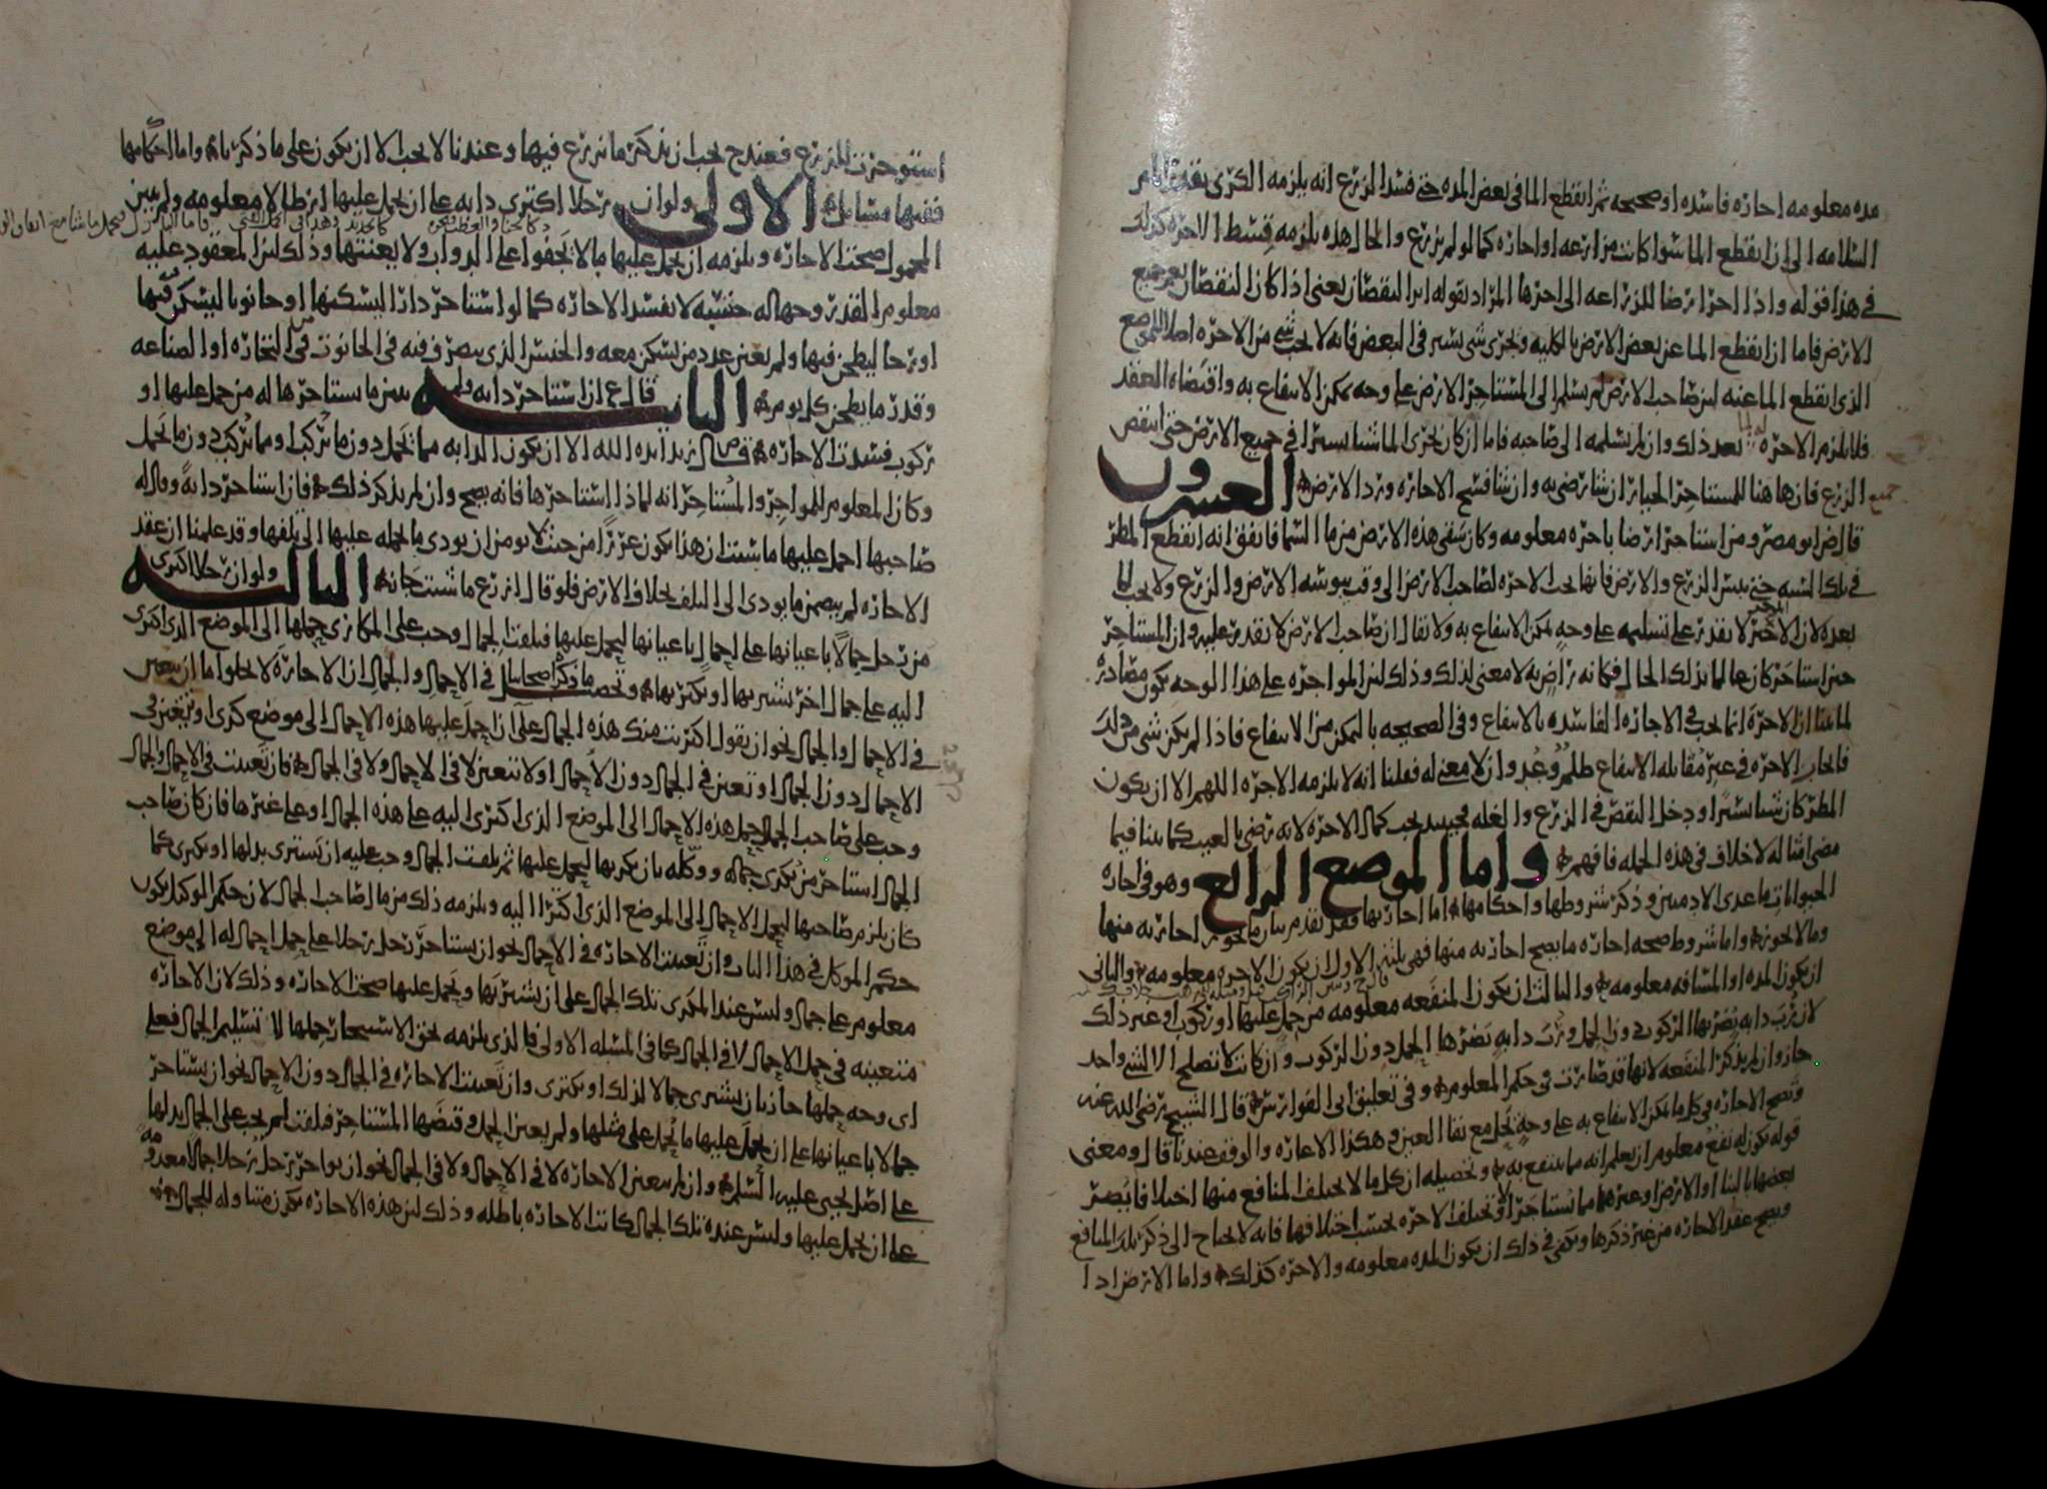 مده معلومه اجاره فاسده او صحيحه ثم انقطع الما فى بعض المده حتى فسد الزرع انه يلزمه الكرى بقدر ايام
السلامه الى ان انقطع الما سوا كانت مزارعه او اجاره كما لو لم يزرع والحال هذه يلزمه قسط الاجره كذلك
فى هذا قوله واذا اجر ارضا للزراعه الى اخرها المراد بقوله النقصان يعنى اذا كان النقصان يعم جميع
الارض فاما ان انقطع الما عن بعض الارض بالكليه وجرى شى يسير فى البعض فانه لا يجب شى من الاجره اصلا للموضع
الذى انقطع الما عنه لان صاحب الارض لم يسلم الى المستاجر الارض على وجه يمكن الانتفاع به واقتضاه العقد
فلا يلزم الاجره بعد ذلك وان لم يسلمه الى صاحبه فاما ان كان يجرى الما شيا يسيرا فى جميع الارض حتى انتقص
الزرع فان هاهنا للمستاجر الخيار ان شا رضى به وان شا فسخ الاجاره ورد الارض العسرون
قال ابو مضر ومن استاجر ارضا باجره معلومه وكان سقى هذه الارض من ما السما فاتفق انه انقطع المطر
فى تلك السنه حتى يبس الزرع والارض فانها تجب الاجره لصاحب الارض الى وقت يبوسه الارض والزرع ولا يجب لما
بعده لان الاجير لا يقدر على تسليمه على وجه يمكن الانتفاع به ولا يقال ان صاحب الارض لا يقدر عليه وان المستاجر
حين استاجر كان عالما بذلك الحال فكانه راض به لا معنى لذلك وذلك لان المواجره على هذا الوجه يكون مصادره
لما بينا ان الاجره انما تجب فى الاجاره الفاسده بالانتفاع وفى الصحيحه بالتمكن من الانتفاع فاذا لم يكن شى من ذلك
فايجاب الاجره فى غير مقابله الانتفاع ظلم وعدوان لا معنى له فقلنا انه لا يلزمه الاجره اللهم الا ان يكون
المطر كان شيا يسيرا ودخل النقص فى الزرع والغله فحينيذ يجب كمال الاجره لانه رضى بالعيب كما بينا فيما
مضى امثاله لا خلاف فى هذه الجمله فافهم واما الموضع الرابع وهو فى اجاره
الحيوانات ما عدى الادميين وذكر شروطها واحكامها اما اجارتها فقد تقدم بيان ما يجوز اجارته منها
وما لا يجوز واما شروط صحه اجاره ما يصح اجارته منها فهى ثلثه الاول ان يكون الاجره معلومه والثانى
ان يكون المده او المسافه معلومه والثالث ان يكون المنفعه معلومه من حمل عليها او ركوب او غير ذلك
لان رب دابه يضر بها الركوب دون الحمل ورب دابه يضرها الحمل دون الركوب وان كانت لا تصلح الا لشى واحد
جاز وان لم يذكر المنفعه لانها قد صارت فى حكم المعلوم وفى تعليق ابى الفوارس قال الشيخ رضى الله عنه
وتصح الاجاره فى كل ما يمكن الانتفاع به على وجه يحل مع بقا العين وهكذا الاعاره والوقف عندنا قال ومعنى
قوله يكون له نفع معلوم ان يعلم انه مما ينتفع به وتحصيله ان كل ما لا يختلف المنافع منها اختلافا يضر
بعضها بالبنا او الارض او غيرها مما يستاجر او تختلف الاجره بحسب اختلافها فانه لا يحتاج الى ذكر تلك المنافع
ويصح عقد الاجاره من غير ذكرها ويكفى فى ذلك ان يكون المده معلومه والاجره كذلك واما الارض اذا
استوجرت للزرع فعند ح يجب ان يذكر ما يزرع فيها وعندنا لا يجب الا ان يكون على ما ذكرنا واما احكامها
ففيها مسايل الاولى ولو ان رجلا اكترى دابه على ان يحمل عليها ارطالا معلومه ولم يبين
المحمول صحت الاجاره ويلزمه ان يحمل عليها ما لا يجفوا على الدواب ولا يعنتها وذلك لان المعقود عليه
معلوم القدر وجهاله جنسه لا تفسد الاجاره كما لو استاجر دارا ليسكنها او حانوتا ليسكن فيها
او رحا ليطحن فيها ولم يعين عدد من يسكن معه والجنس الذى يتصرف فيه فى الحانوت من التجاره او الصناعه
وقدر ما يطحن كل يوم الثانيه قال ع ان استاجر دابه ولم يبين ما يستاجرها له من حمل عليها او
ركوب فسدت الاجاره قال زيد ايده الله الا ان يكون الدابه مما تحمل دون ما تركب او مما تركب دون ما تحمل
وكان المعلوم للمواجر والمستاجر انه لماذا استاجرها فانه يصح وان لم يذكر ذلك فان استاجر دابة وقال له
صاحبها احمل عليها ما شيت ان هذا يكون غررا من حيث لا يومن ان يودى ما يحمله عليها الى تلفها وقد علمنا ان عقد
الاجاره لم يتضمن ما يودى الى التلف بخلاف الارض فلو قال ازرع ما شيت جاز الثالثه ولو ان رجلا اكترى
من رجل جمالا باعيانها على احمال باعيانها ليحمل عليها فتلفت الجمال وجب على المكارى حملها الى الموضع الذى اكترى
اليه على جمال اخر يشتريها او يكتريها وتحصيل ما ذكره اصحابنا فى الاحمال والجمال ان الاجاره لا يخلوا اما ان يتعين
فى الاحمال والجمال نحو ان يقول اكتريت منك هذه الجمال على ان احمل عليها هذه الاحمال الى موضع كذى او يتعين فى
الاحمال دون الجمال او تتعين فى الجمال دون الاحمال او لا تتعين لا فى الاحمال ولا فى الجمال فان تعينت فى الاحمال والجمال
وجب على صاحب الجمال حمل هذه الاحمال الى الموضع الذى اكترى اليه على هذه الجمال او على غيرها فان كان صاحب
الجمال استاجر من يكرى جماله ووكله بان يكريها ليحمل عليها ثم تلفت الجمال وجب عليه ان يشترى بدلها او يكترى كما
كان يلزم صاحبها ليحمل الاحمال الى الموضع الذى اكترا اليه ويلزمه ذلك من مال صاحب الجمال لان حكم الوكيل يكون
حكم الموكل فى هذا الباب وان تعينت الاجاره فى الاحمال نحو ان يستاجر رجل رجلا على حمل احمال له الى موضع
معلوم على جمال وليس عند المكرى تلك الجمال على ان يشتريها ويحمل عليها صحت الاجاره وذلك لان الاجاره
متعينه فى حمل الاحمال لا فى الجمال كما فى المسله الاولى فالذى يلزمه بحق الاستيجار حملها لا تسليم الجمال فعلى
اى وجه حملها جاز بان يشترى جمالا لذلك او يكترى وان تعينت الاجاره فى الجمال دون الاحمال نحو ان يستاجر
جمالا باعيانها على ان يحمل عليها ما يحمل على مثلها ولم يعين الحمل وقبضها المستاجر فتلفت لم يجب على الجمال بدلها
على اصل يحيى عليه السلم وان لم يتعين الاجاره لا فى الاحمال ولا فى الجمال نحو ان يواجر رجل رجلا جمالا معدومه
على ان يحمل عليها وليس عنده تلك الجمال كانت الاجاره باطله وذلك لان هذه الاجاره يكون متناوله للجمال